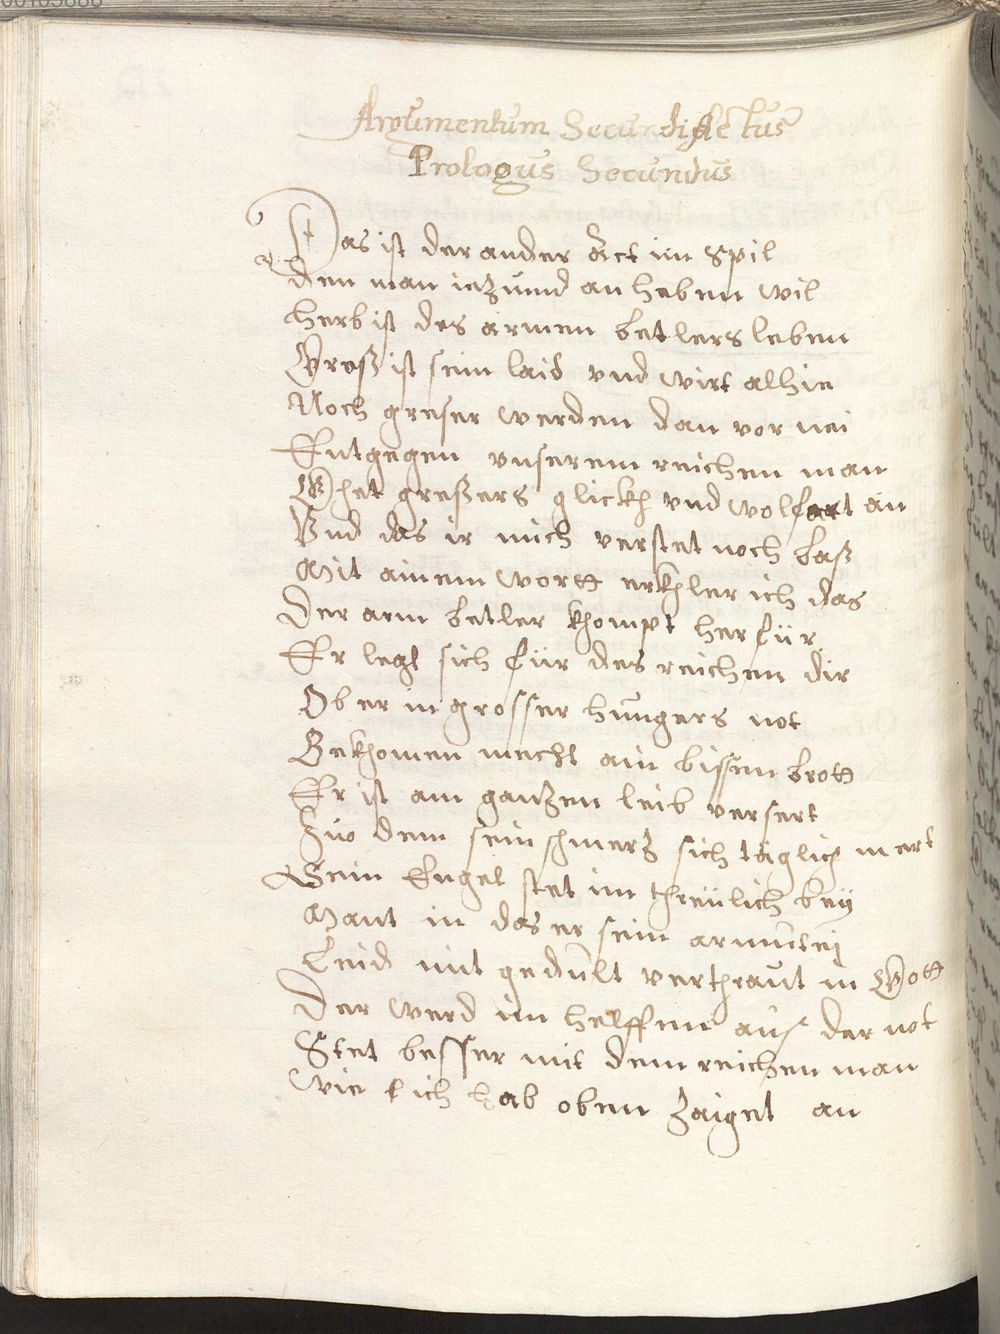 Argumentum Secundi Actus
Prologus Secundus
Das ist der ander Act im Spil
den man iezund anheben wil
herb ist des armen betlers leben
Groß ist sein laid vnd wirt alhie
Noch greser werden dan vor nei
Entgegen vnserem reichen man
Ghet greßers glickh vnd wolfart an
Vnd das ir mich verstet noch baß
Mit ainem wortt erkhler ich das
Der arm betler khompt herfür
Er legt sich für des reichen dir
Ob er in grosser hungers not
Bekhomen mecht ain bissen brott
Er ist am ganzen leib versert
Zuo dem sein schmerz sich täglich mert
Sein Engel stet im threulich bey
Mant in das er sein armutei
Leid mit gedult verthraut in Gott
Der werd im helffenn aus der not
Stet besser mit dem reichen man
Wie ich hab oben zaiget an